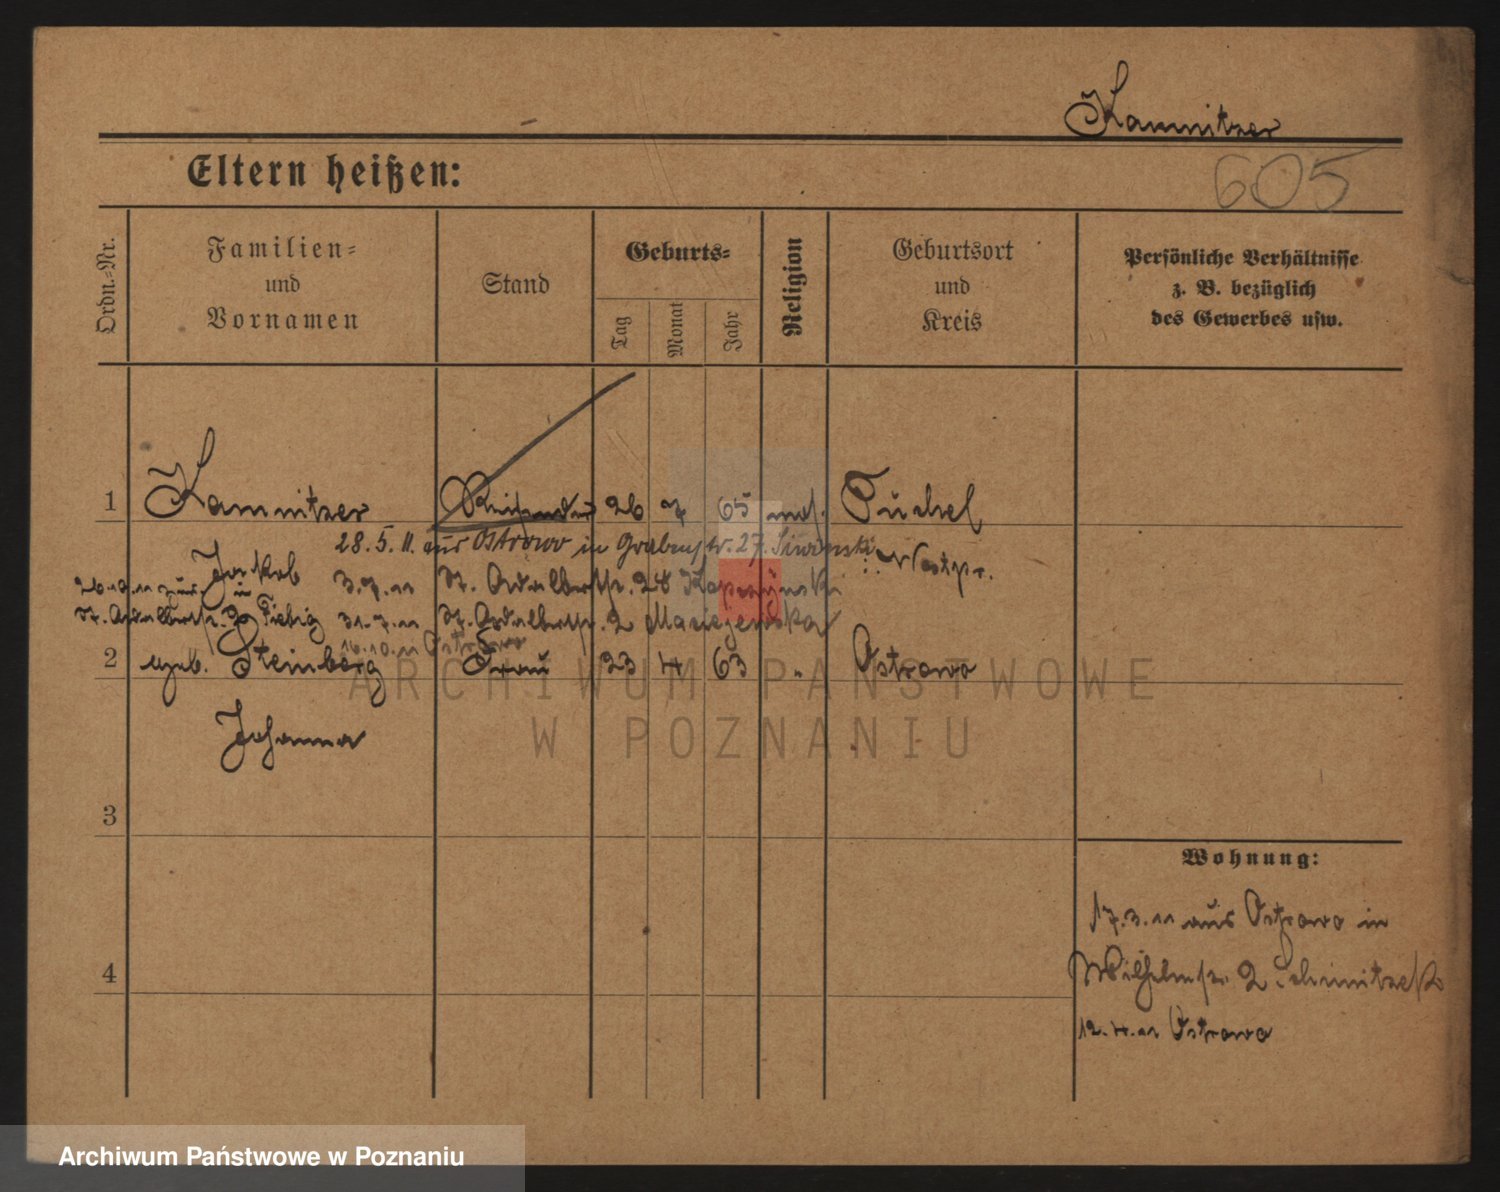 Kamnitzer
Eltern heißen:
605
Ordn.-Nr.
Familien-
und
Vornamen
Stand
Geburts-
Tag
Monat
Jahr
Religion
Geburtsort
und
Kreis
Persönliche Verhältnisse
z. B. bezüglich
des Gewerbes usw.
1 Kamnitzer Reisender 26 7 65 mos. Tuchel
28.5.11. aus Ostrowo in Grabenstr. 27.
Jakob 3.7.11 St. Adalbertstr. 28 Westpr.
in
St. Adalbertstr. 31.7.11 St. Adalbertstr. 2 Maciejewska
16.10.11 Ostrowo
2 geb. Steinberg Frau 23 4 63 " Ostrowo
Johanna
3
4
Wohnung:
17.3.11 aus Ostrowo in
Wilhelmstr. 2
12.4.11 Ostrowo
ARCHIWUM PAŃSTWOWE
W POZNANIU
Archiwum Państwowe w Poznaniu